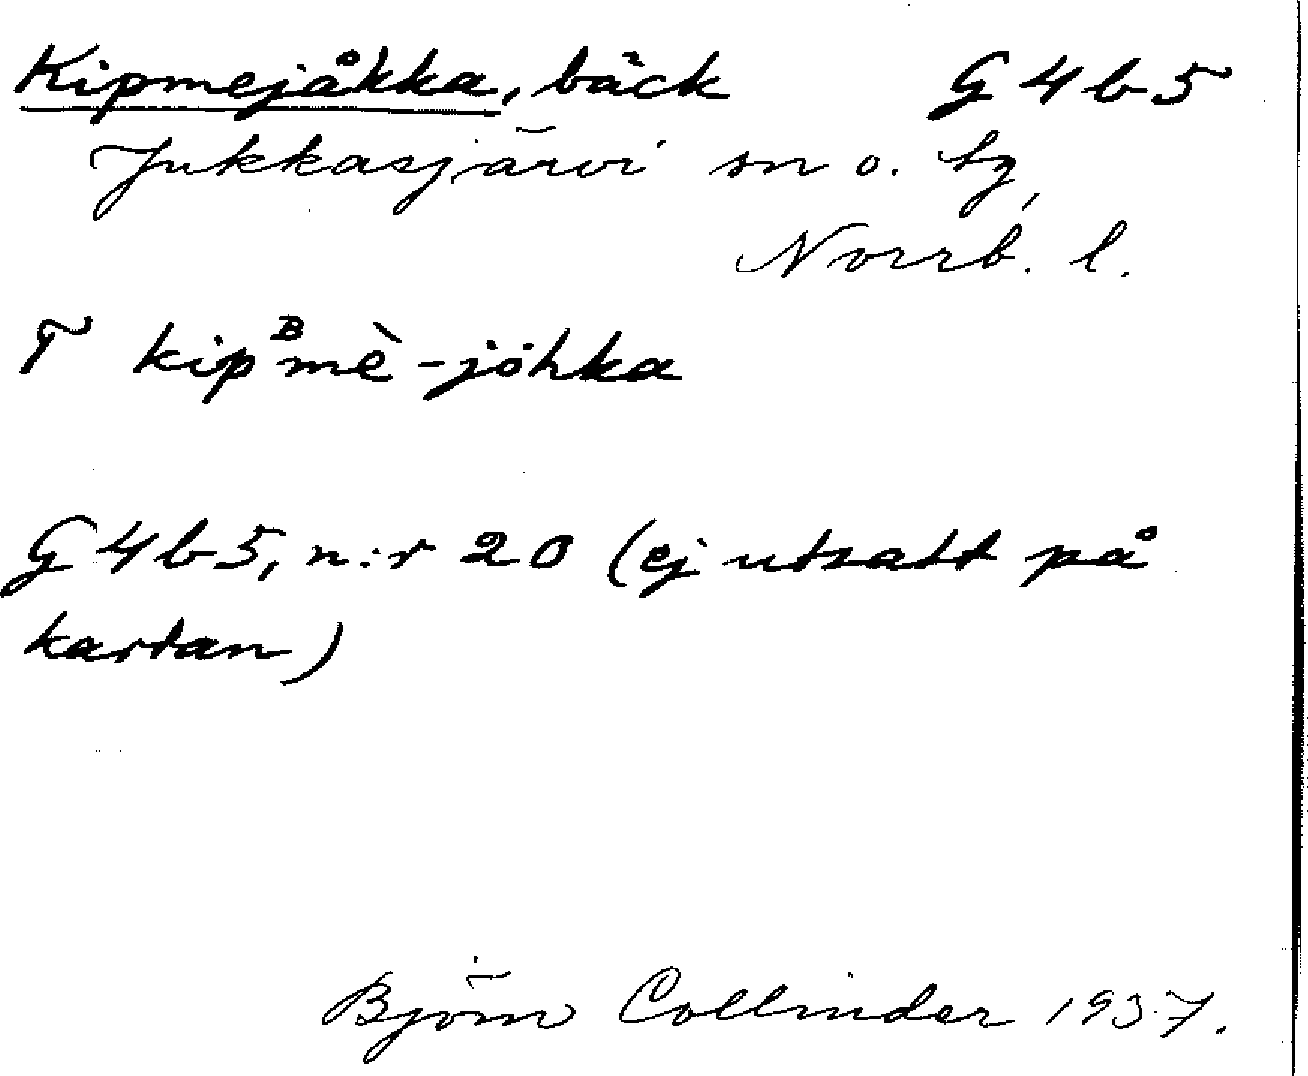 Kipmejåkka, bäck G4b5
Jukkasjärvi sn o. tg,
Norrb. l.
T kipᴮmè-jòhka
G4b5, n:r 20 (ej utsatt på
kartan)
Björn Collinder 1937.